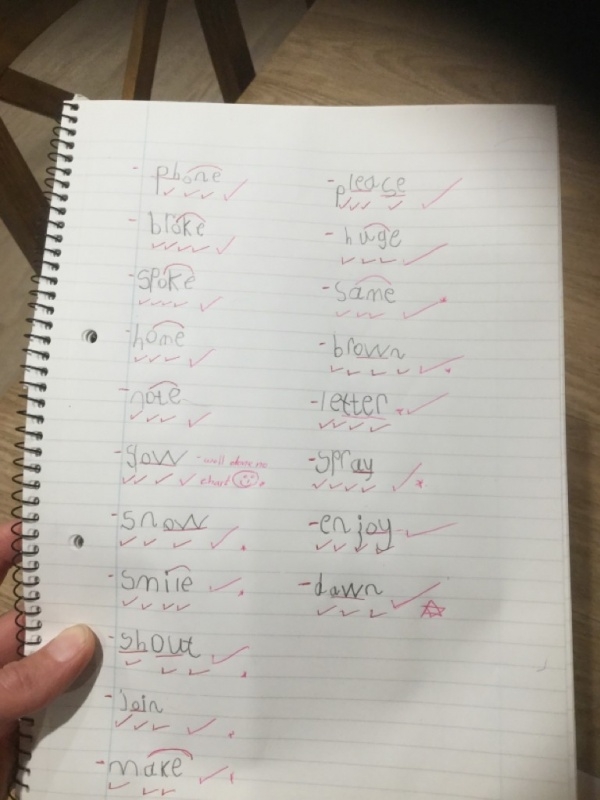 - phone
- broke
- spoke
- home
- note
- glow - well done no
chart
- snow
- smile
- shout
- join
- make
- pleace
- huge
- same
- brown
- letter
- spray
- enjoy
- dawn